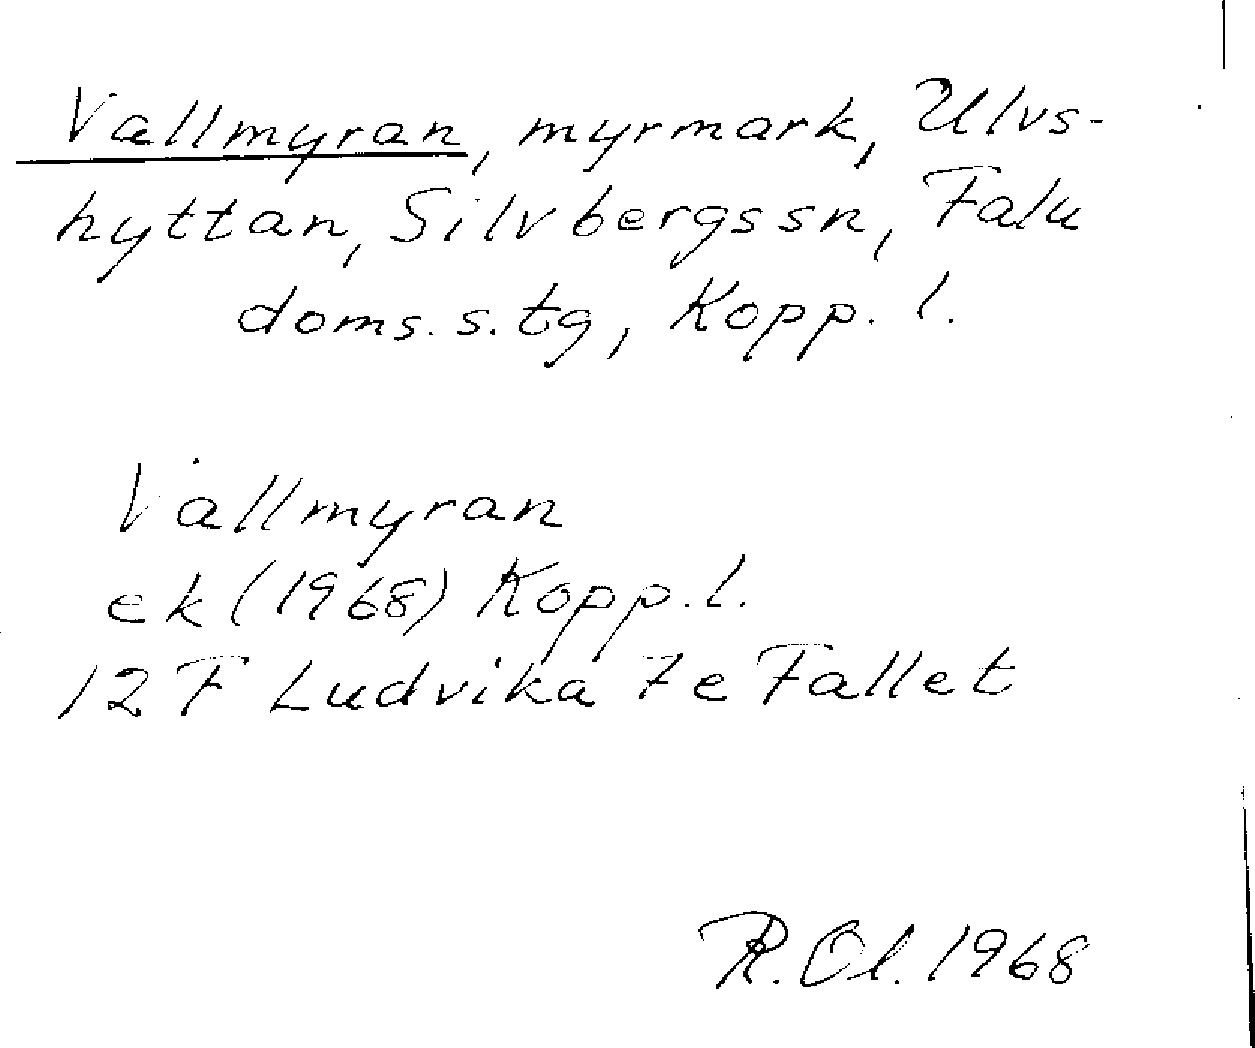 Vallmyran, myrmark, Ulvs-
hyttan, Silvbergs sn, Falu
doms. s. tg, Kopp. l.
Vallmyran
ek (1968) Kopp. l.
12 F Ludvika 7 e Fallet
R. Ol. 1968